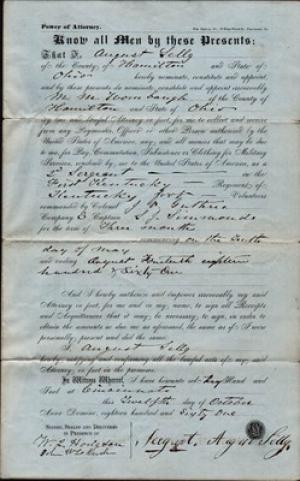 Power of Attorney.
Know all Men by these Presents:
That I, August Selly
of the County of Hamilton and State of
Ohio hereby nominate, constitute and appoint,
and by these presents do nominate, constitute and appoint irrevocably
W. M. of the County of
Hamilton and State of Ohio
my true and lawful Attorney, for me to collect and receive
from any Paymaster, Officer or other Person authorized by the
United States of America, any and all moneys that may be due
to me for Pay, Commutation, Subsistence or Clothing for Military
Services, rendered by me to the United States of America, as a
2d Sergeant in the
First Kentucky Regiment of
Kentucky foot Volunteers
commanded by Colonel J. V. Guthrie
Company E Captain S. J. Simmonds
for the term of Three months
commencing on the tenth
day of May
and ending August eighteen
hundred & Sixty One
And I hereby authorize and empower irrevocably my said
Attorney in fact, for me and in my name, to sign all Receipts
and Acquittances that it may be necessary to sign, in order to
obtain the amounts so due me as aforesaid, the same as if I were
personally present and did the same.
I, August Selly
hereby ratifying and confirming all the lawful acts of my said
Attorney, in fact in the premises.
In Witness Whereof, I have hereunto set my Hand and
Seal at Cincinnati
this Twelfth day of October
Anno Domini, eighteen hundred and Sixty One
Signed, Sealed and Delivered
in Presence of
Sergeant, August Selly